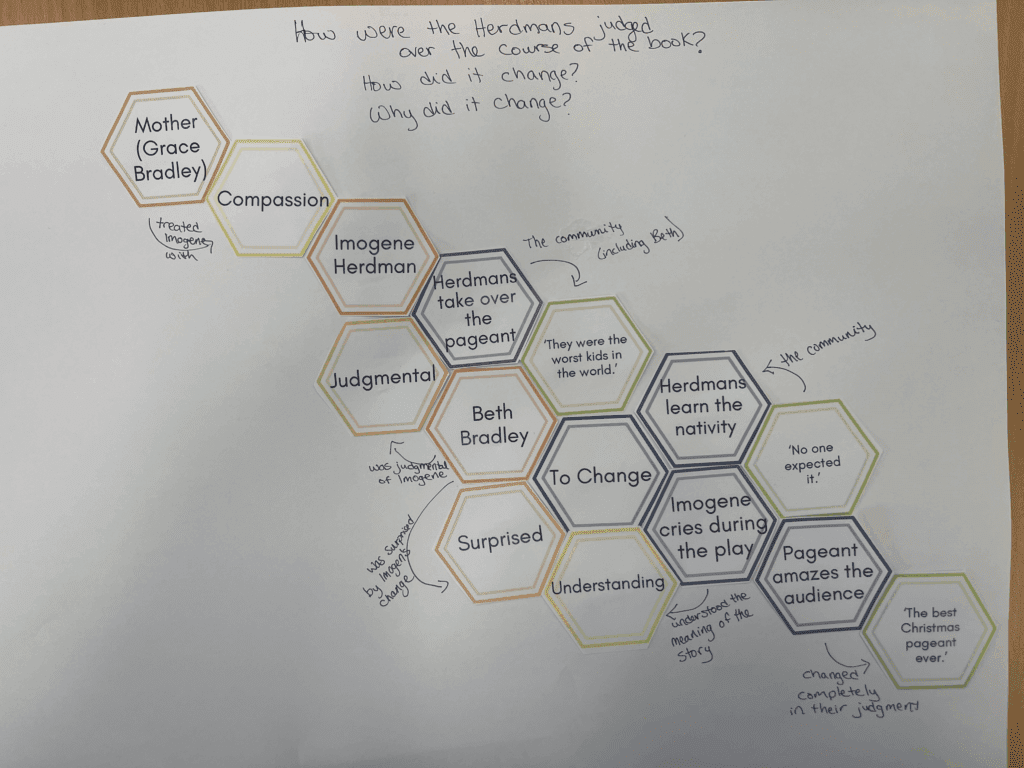 How were the Herdmans judged
over the course of the book?
How did it change?
Why did it change?
Mother
(Grace
Bradley)
treated
Imogene
with
Compassion
Imogene
Herdman
Herdmans
take over
the
pageant
The community
(including Beth)
'They were the
worst kids in
the world.'
Judgmental
was judgmental
of Imogene
Beth
Bradley
was surprised
by Imogene's
change
Surprised
To Change
Understanding
Herdmans
learn the
nativity
the community
'No one
expected
it.'
Imogene
cries during
the play
understood the
meaning of the
story
Pageant
amazes the
audience
changed
completely
in their judgment
'The best
Christmas
pageant
ever.'